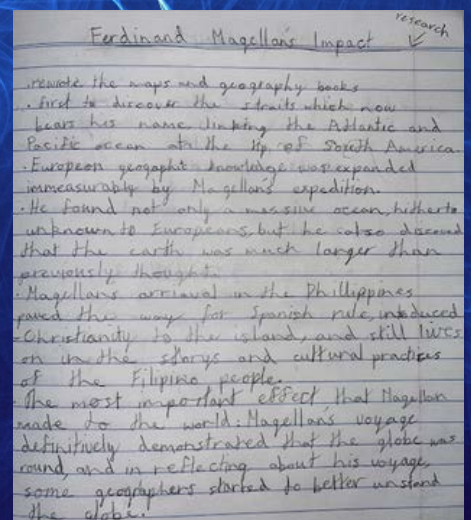 research
Ferdinand Magellan's Impact
. rewrote the maps and geography books
. first to discover the straits which now
bears his name linking the Atlantic and
Pacific ocean at the tip of South America.
. European geographic knowledge was expanded
immeasurably by Magellan's expedition.
. He found not only a massive ocean, hitherto
unknown to Europeans, but he also discovered
that the earth was much larger than
previously thought.
. Magellans arrival in the Phillippines
paved the way for Spanish rule, introduced
Christianity to the island, and still lives
on in the storys and cultural practices
of the Filipino people.
The most important effect that Magellan
made to the world: Magellan's voyage
definitively demonstrated that the globe was
round, and in reflecting about his voyage,
some geographers started to better unstand
the globe.